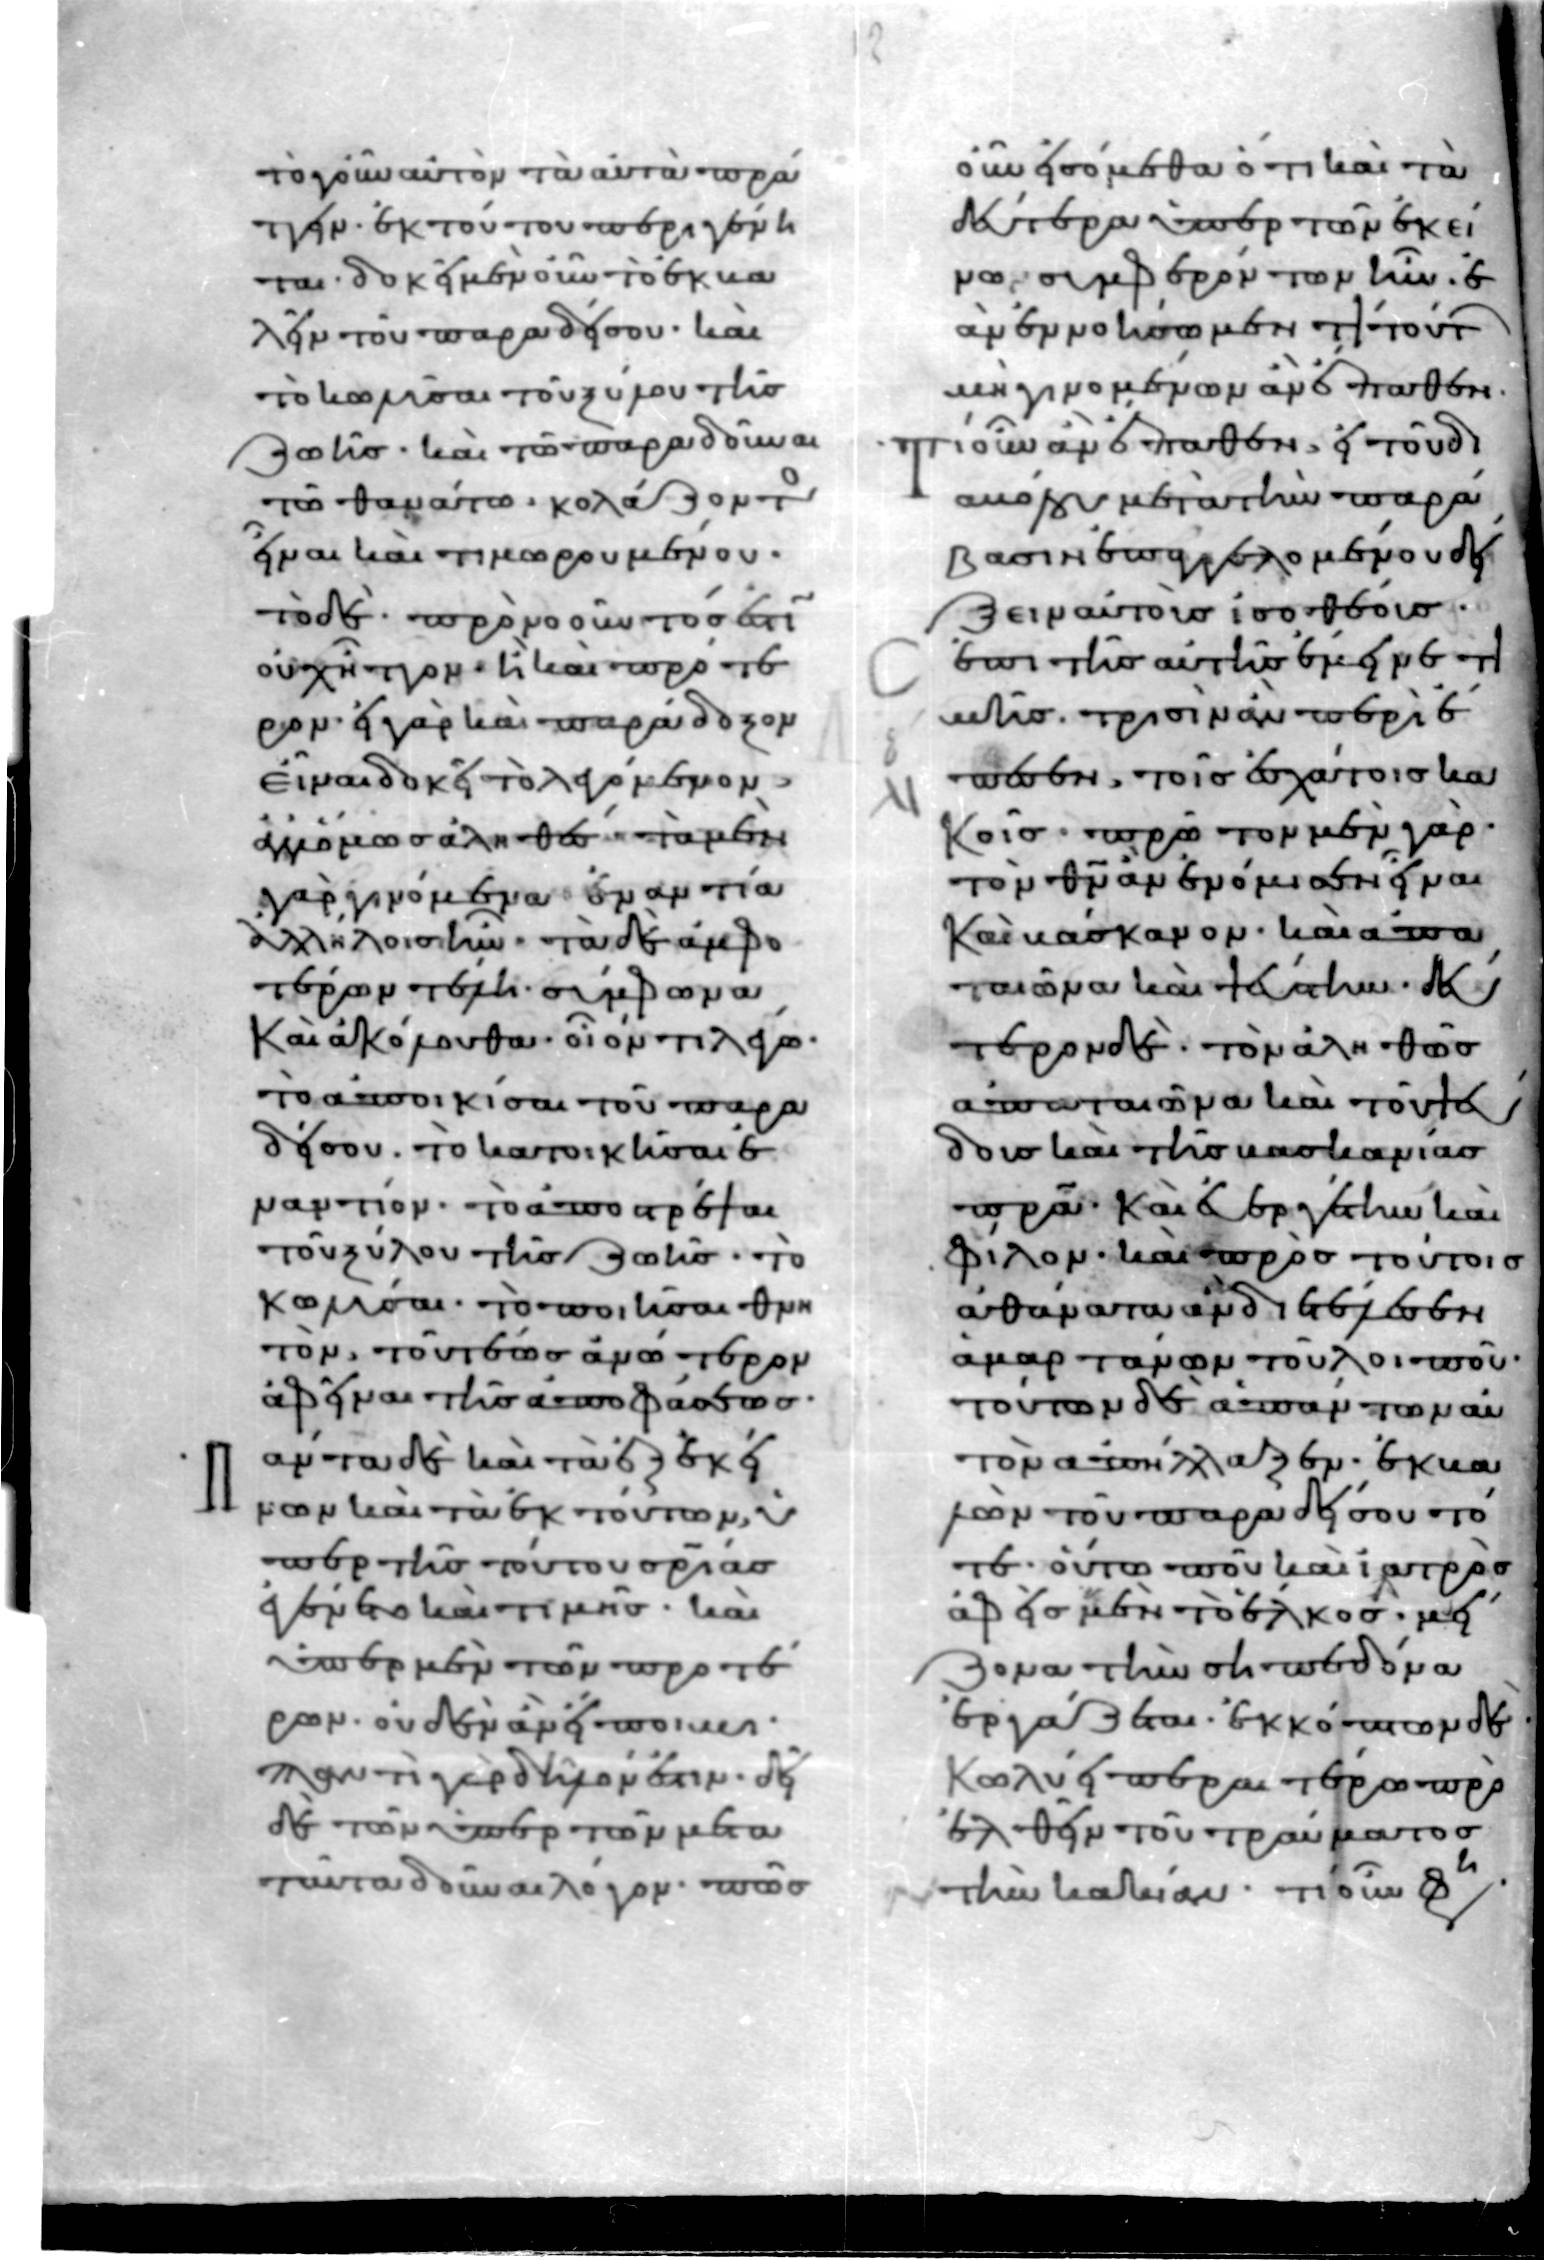 τὸ γοῦν αὐτὸν τὰ αὐτὰ πρά
τειν· ἐκ τούτου περιγένη
ται· δοκεῖ μὲν οὖν τὸ ἐκβα
λεῖν τοῦ παραδείσου· καὶ
τὸ κωλῦσαι τοῦ ξύλου τῆς
ζωῆς· καὶ τῶ παραδοῦναι
τῶ θανάτω· κολάζοντο
εἶναι καὶ τιμωρουμένου·
τὸ δὲ· προνοοῦντός ἐστι
οὐχ ἧττον· ἢ καὶ πρότε
ρον· εἰ γὰρ καὶ παράδοξον
εἶναι δοκεῖ τὸ λεγόμενον,
ἀλλ' ὅμως ἀληθές· τὰ μὲν
γὰρ γινόμενα ἐναντία
ἀλλήλοις ἦν· τὰ δὲ ἀμφο
τέρων τέλη· σύμφωνα
καὶ ἀκόλουθα· οἷόν τι λέγω·
τὸ ἀποικίσαι τοῦ παρα
δείσου· τὸ κατοικῆσαι ἐ
ναντίον· τὸ ἀποστρέψαι
τοῦ ξύλου τῆς ζωῆς· τὸ
κωλῦσαι· τὸ ποιῆσαι θνη
τὸν, τοῦ τέως ἀνώτερον
ἀφεῖναι τῆς ἀποφάσεως·
Πάντα δὲ καὶ τὰ ἐξ ἐκεί
νων καὶ τὰ ἐκ τούτων, ὑ
πὲρ τῆς τούτου σρίας
ἐγένετο καὶ τιμῆς· καὶ
ὑπὲρ μὲν τῶν προτέ
ρων· οὐδὲν ἂν εἴποιμι·
παντὶ γὰρ δῆλόν ἐστιν· δεῖ
δὲ τῶν ὑπὲρ τῶν μετα
ταῦτα δοῦναι λόγον· πῶς
οὖν εἰσόμεθα ὅτι καὶ τὰ
δεύτερα ὑπὲρ τῶν ἐκεί
νω συμφερόντων ἦν· ἐ
ὰν ἐννοήσωμεν τί τούτ
μὴ γινομένων ἂν ἔπαθεν·
Τί οὖν ἂν ἔπαθεν, εἰ τοῦ δι
αβόλου μετὰ τὴν παρά
βασιν ἐπαγγελομένου δεί
ξειν αὐτοὺς ἰσοθέους·
ἐπὶ τῆς αὐτῆς ἔμεινε τι
μῆς· τρισὶν ἂν περιέ
πεσεν, τοῖς ἐσχάτοις κα
κοῖς· πρῶτον μὲν γὰρ·
τὸν θν ἂν ἐνόμισεν εἶναι
καὶ βάσκανον· καὶ ἀπα
ταιῶνα καὶ ψεύστην· δεύ
τερον δὲ· τὸν ἀληθῶς
ἀπαταιῶνα καὶ τοῦ ψεύ
δους καὶ τῆς βασκανίας
πρα· καὶ εὐεργέτην καὶ
φίλον· καὶ πρὸς τούτοις
ἀθάνατα ἂν διετέλεσεν
ἁμαρτάνων τοῦ λοιποῦ·
τούτων δὲ ἁπάντων αὐ
τὸν ἀπήλλαξεν· ἐκβα
λὼν τοῦ παραδείσου τό
τε· οὕτω που καὶ ἰατρὸς
ἀφεὶς μὲν τὸ ἕλκος· μεί
ζονα τὴν σηπεδόνα
ἐργάζεται· ἐκκόπτων δὲ·
κωλύει περαιτέρω προ
ελθεῖν τοῦ τραύματος
τὴν κακίαν· τί οὖν φη·